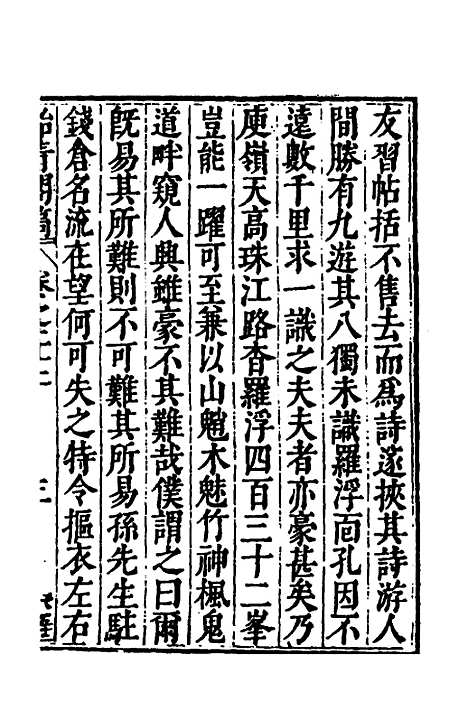 友習帖括不售去而爲詩遂挾其詩游人
間勝有九遊其八獨未識羅浮面孔因不
遠數千里求一識之夫夫者亦豪甚矣乃
庾嶺天高珠江路杳羅浮四百三十二峯
豈能一躍可至兼以山魈木魅竹神楓鬼
道畔窺人興雖豪不其難哉僕謂之曰爾
旣易其所難則不可難其所易孫先生駐
錢倉名流在望何可失之特令摳衣左右
三